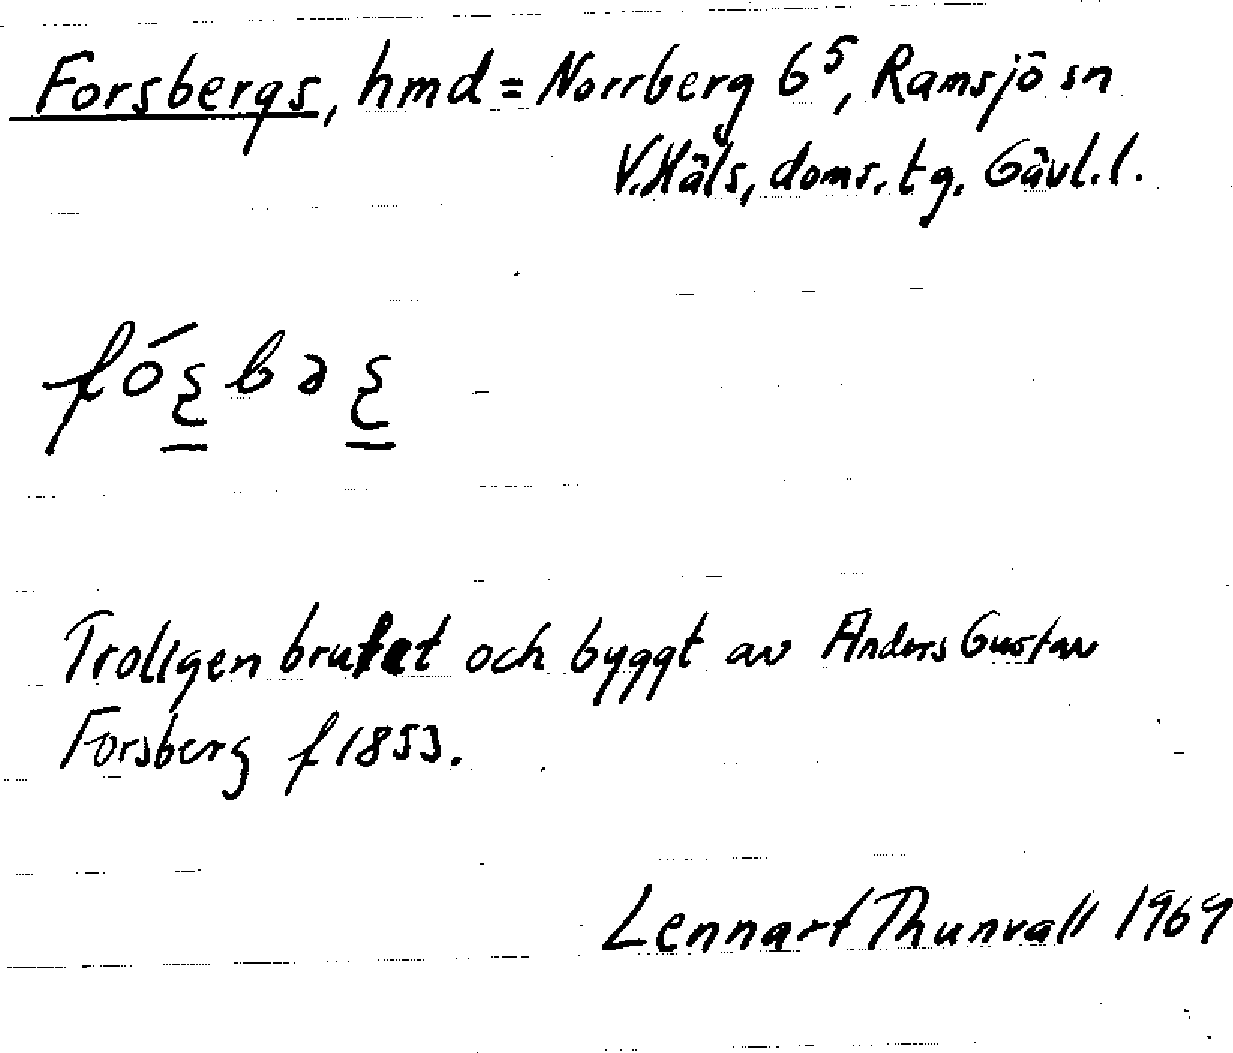 Forsbergs, hmd = Norrberg 6⁵, Ramsjö sn
V. Häls, doms. tg. Gävl. l.
fósbəs
Troligen brutet och byggt av Anders Gustav
Forsberg f 1853.
Lennart Thunvall 1969